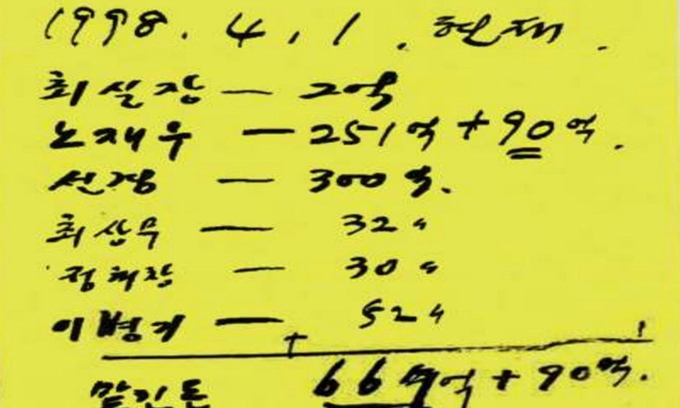 1998. 4. 1. 현재.
최실장 — 2억
노재우 — 251억 + 90억.
선경 — 300억.
최상무 — 32〃
정해창 — 30〃
이병기 — 52〃
맡긴돈 667억 + 90억.